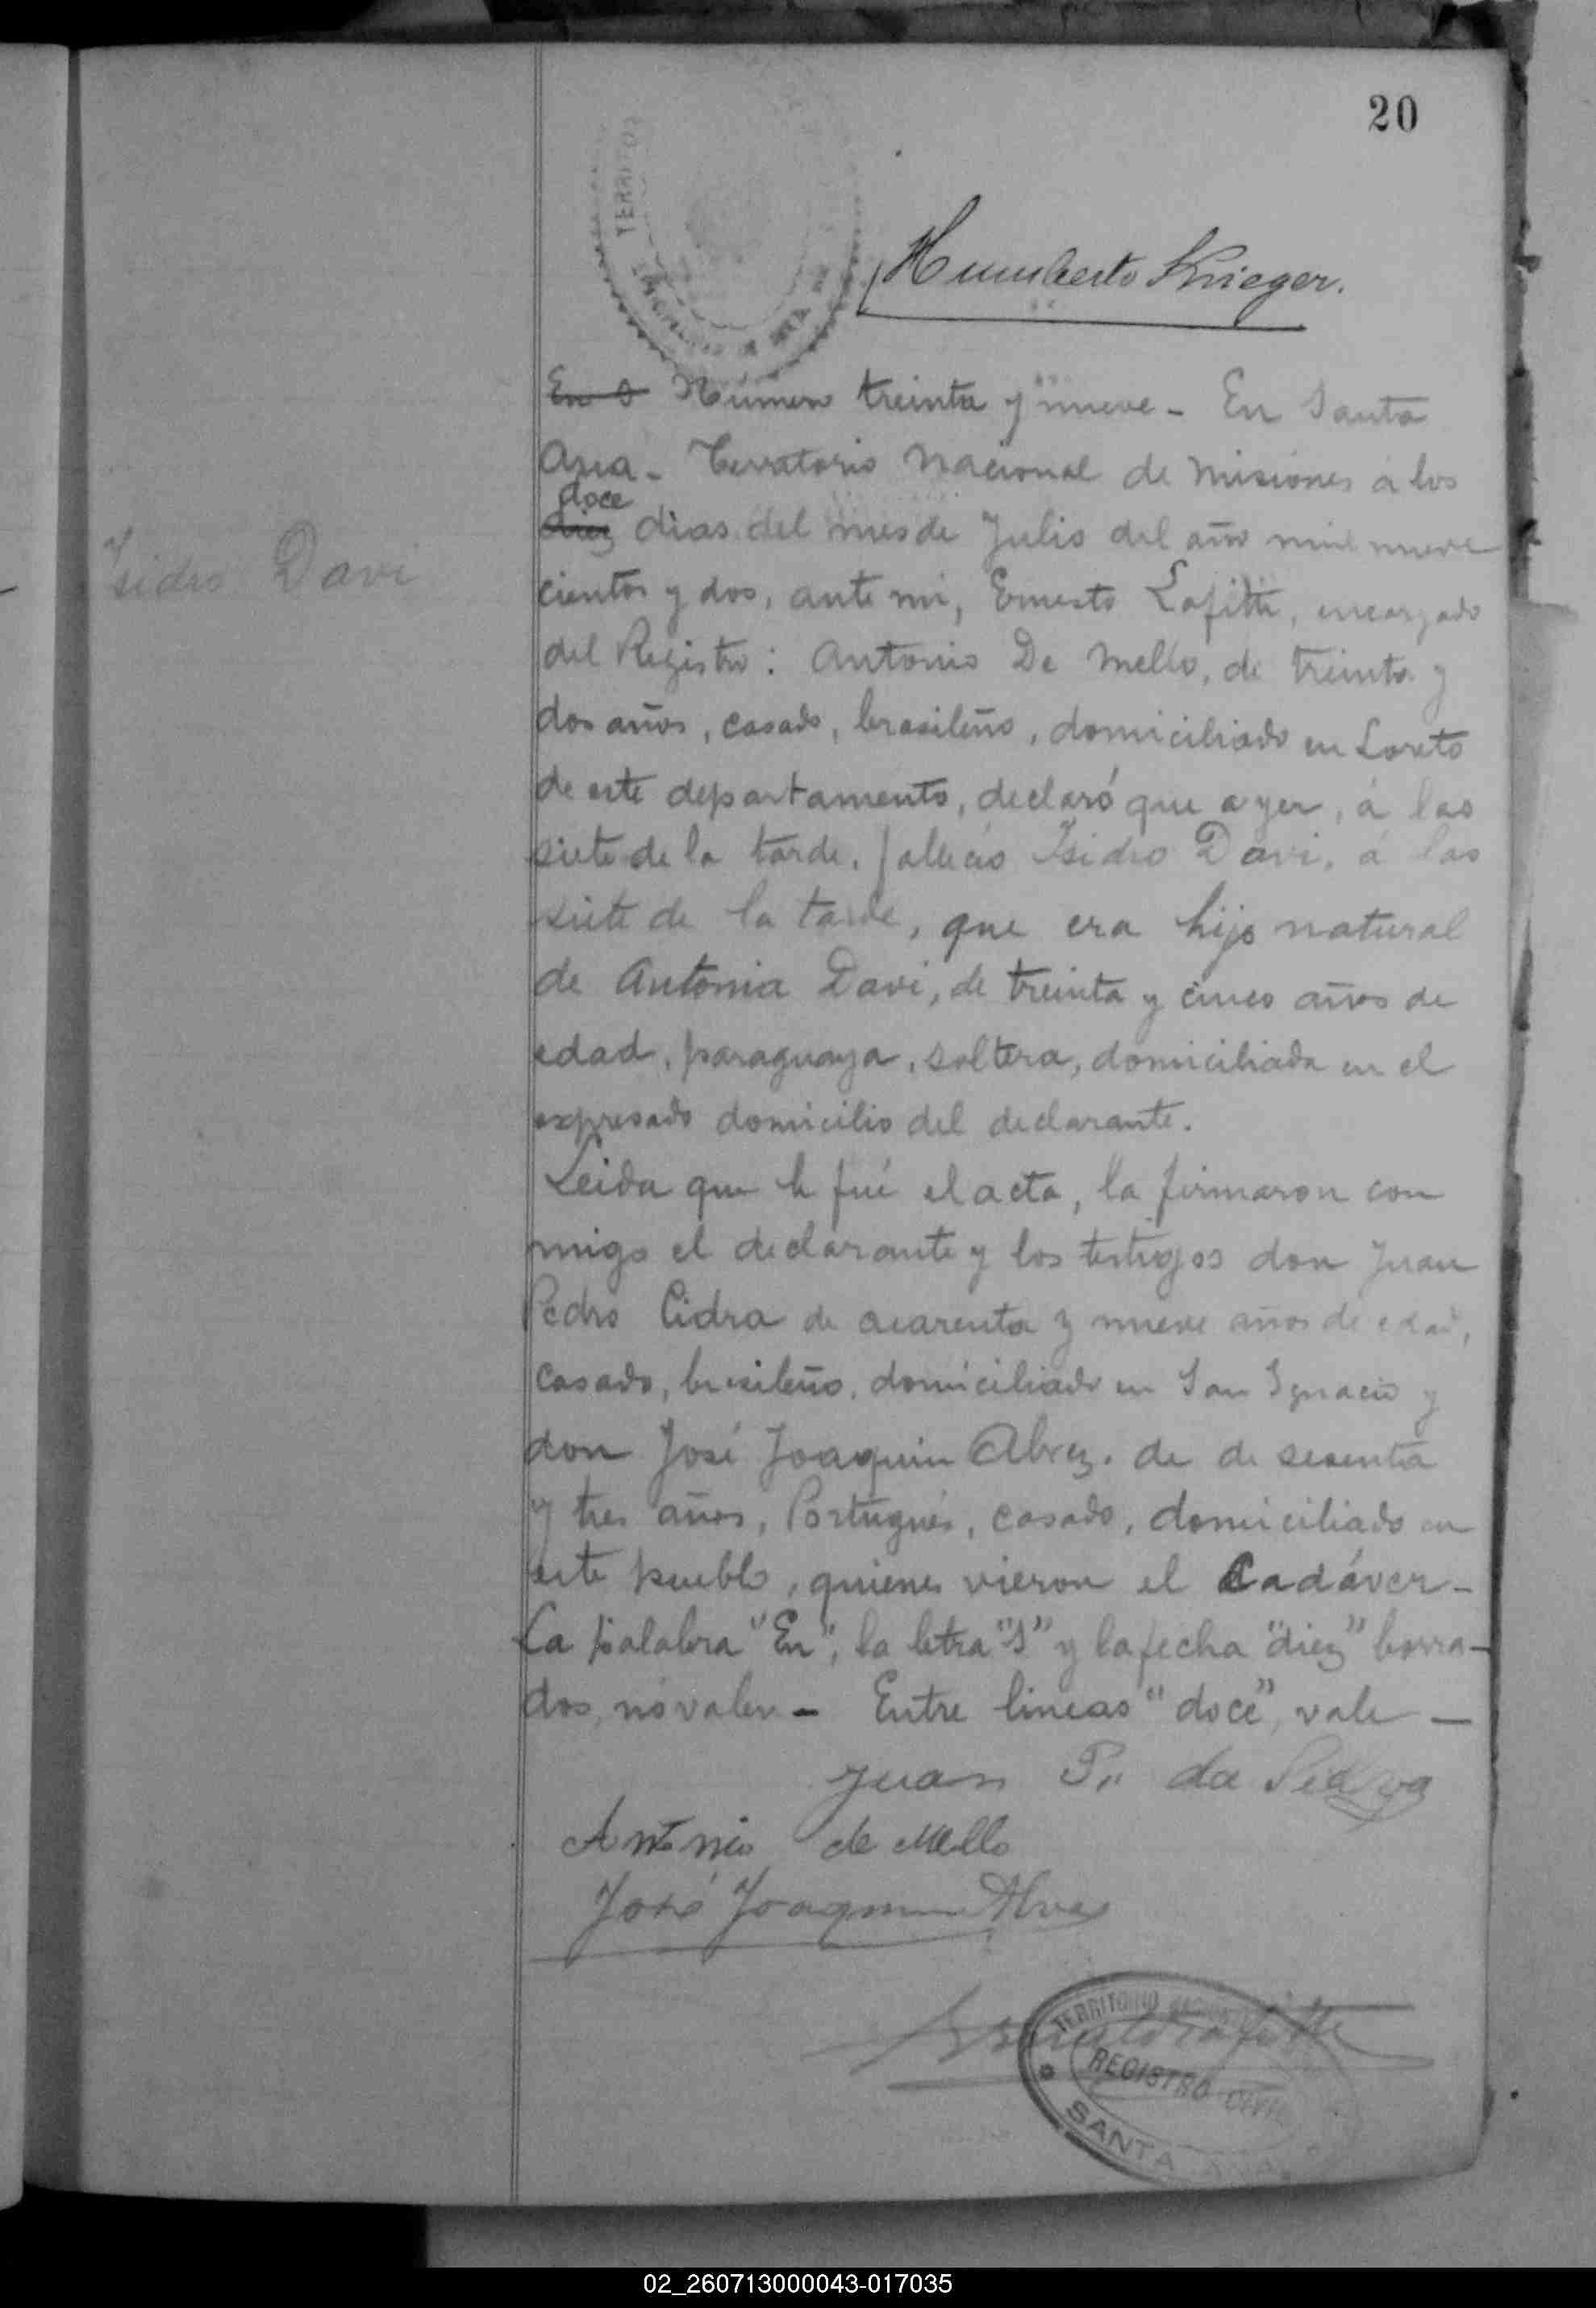 20
Humberto Krieger.
Isidro Davi
En S Número treinta y nueve - En Santa
Ana - Territorio Nacional de Misiones á los
doce
diez dias del mes de Julio del año mil nueve
cientos y dos, ante mi, Ernesto Lafitte, encargado
del Registro: Antonio De Mello, de treinta y
dos años, casado, brasileño, domiciliado en Loreto
de este departamento, declaró que ayer, á las
siete de la tarde, fallecio Isidro Davi, á las
siete de la tarde, que era hijo natural
de Antonia Davi, de treinta y cinco años de
edad, paraguaya, soltera, domiciliada en el
expresado domicilio del declarante.
Leida que le fué el acta, la firmaron con
migo el declarante y los testigos don Juan
Pedro Cidra de cuarenta y nueve años de edad,
casado, brasileño, domiciliado en San Ignacio y
don José Joaquin Alvez. de de sesenta
y tres años, Portugués, casado, domiciliado en
este pueblo, quienes vieron el Cadáver -
La palabra "En", la letra "S" y la fecha "diez" borra-
dos, no valen - Entre lineas "doce", vale -
Juan P. da
Antonio de Mello
José Joaquin Alves
TERRITORIO NACIONAL
REGISTRO CIVIL
SANTA ANA
02_260713000043-017035